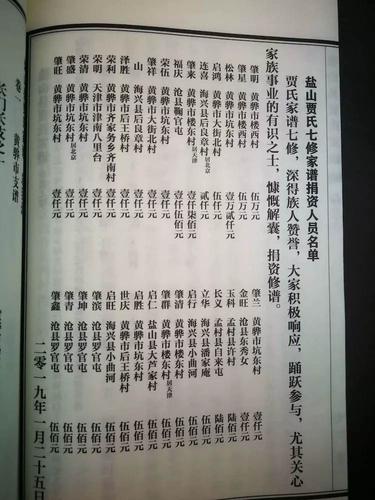 盐山贾氏七修家谱捐资人员名单
贾氏家谱七修，深得族人赞誉，大家积极响应，踊跃参与，尤其关心
家族事业的有识之士，慷慨解囊，捐资修谱。
肇明 黄骅市楼西村 伍万元
肇星 黄骅市楼西村 伍万元
松林 黄骅市坑东村 壹万贰仟元
启鸿 黄骅市大街北村 伍仟元
连喜 海兴县后良章村居北京 贰仟元
肇来 黄骅市楼东村居天津 壹仟柒佰元
福庆 沧县鞠官屯 壹仟伍佰元
荣伍 黄骅市坑东村 壹仟伍佰元
肇祥 黄骅市大街北村 壹仟元
山 海兴县后良章村 壹仟元
泽胜 黄骅市后王桥村 壹仟元
荣利 黄骅市齐家务乡齐南村 壹仟元
荣明 天津市津南八里台 壹仟元
荣清 黄骅市坑东村 壹仟元
肇盛 黄骅市坑东村居北京 壹仟元
肇旺 黄骅市坑东村 壹仟元
肇兰 黄骅市坑东村 壹仟元
金旺 沧县东秀女 壹仟元
玉科 孟村县许村 陆佰元
长义 孟村县自来屯 陆佰元
立华 海兴县潘家庵 伍佰元
启行 海兴县小曲河 伍佰元
肇清 黄骅市楼东村居天津 伍佰元
肇群 黄骅市楼东村 伍佰元
启仁 盐山县大芦家村 伍佰元
启胜 黄骅市坑东村 伍佰元
世庆 黄骅市后王桥村 伍佰元
启旺 海兴县小曲河 伍佰元
肇滨 沧县罗官屯 伍佰元
肇坤 沧县罗官屯 伍佰元
肇青 沧县罗官屯 伍佰元
肇鑫 沧县罗官屯 伍佰元
二零一九年一月二十五日
卷一 黄骅市支谱